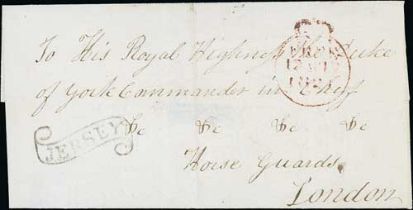 To His Royal Highness the Duke
of York Commander in Chief
&c &c &c &c
JERSEY
Horse Guards
London
FREE